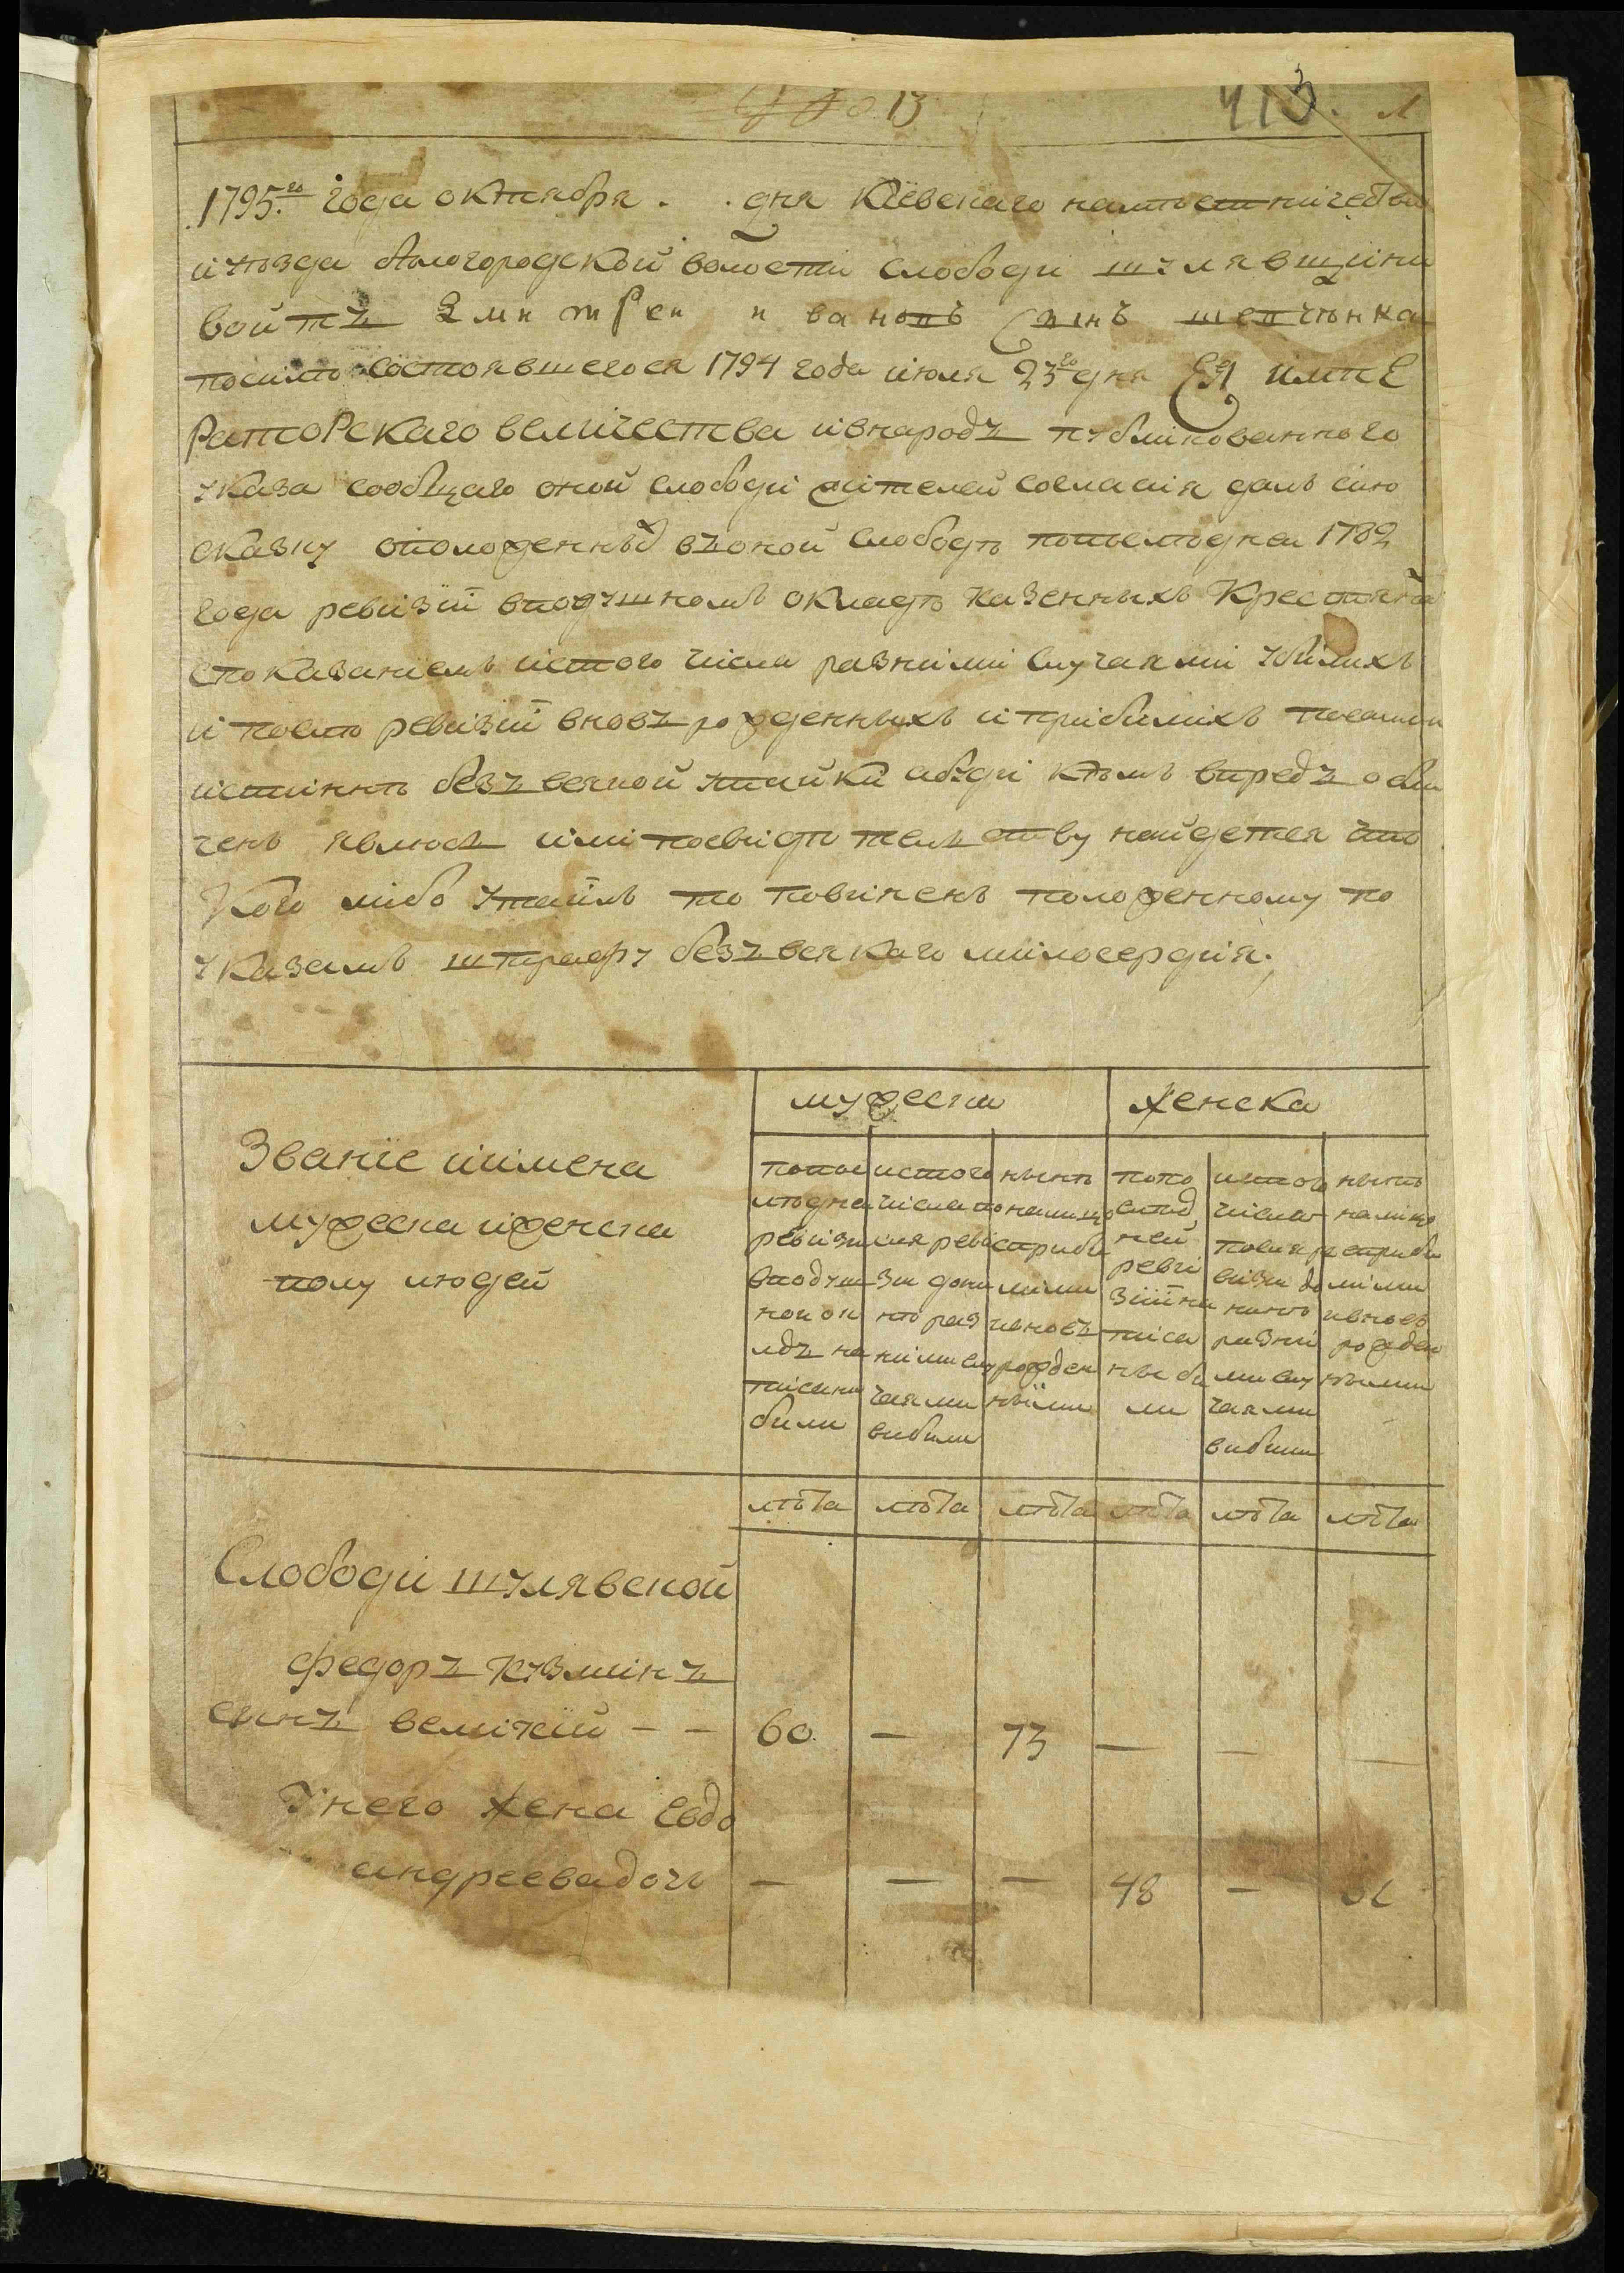 413. Л
1795го года октября . . дня Кіевскаго наместничества
и уезда белогородской волости Слободи шулявщини
войтъ Дмитреи ивановъ Синъ шепчѣнка
посилѣ состоявшегося 1794 года июля 23го дня Ея ИмпЕ
РатоРскаго величества ивнародъ публикованного
указа сообщаго оной слободи жителей согласія далъ сию
сказку оположенныхъ въоной слободѣ попоследней 1782
года ревизіи вподушномъ окладѣ казенныхъ Крестянъ
споказаніемъ истого числа разними случаями убилихъ
и после ревизіи вновъ рожденныхъ и прибилихъ посамой
истиннѣ безъ всякой утайки абуди кемъ впредъ обли
ченъ явлюсъ или посвидѣтелъству найдется что
Кого либо утаилъ то повиненъ положенному по
указамъ штрафу безъ всякаго милосердія.
мужеска женска
Званіе иимена
мужеска иженска
полу людей
попос
ледней
ревизи
вподуш
ном ок
ладъ на
писани
били
истого
числа по
сля реви
зи дони
нѣ раз
ними слу
чаями
вибили
нынѣ
налицо
сприби
лими
ивновъ
рожден
ными
попо
след
ней
реви
зіи на
писа
ны би
ли
истого
числа
посля ре
визи до
нинѣ
разни
ми слу
чаями
вибили
нынѣ
налицо
сприби
лими
ивновъ
рожден
ными
лѣта лѣта лѣта лѣта лѣта лѣта
Слободи шулявской
федоръ кузминъ
сынъ великій - - 60. — 73 — — —
Унего жена Евдо
андреевадочъ — — — 48 —